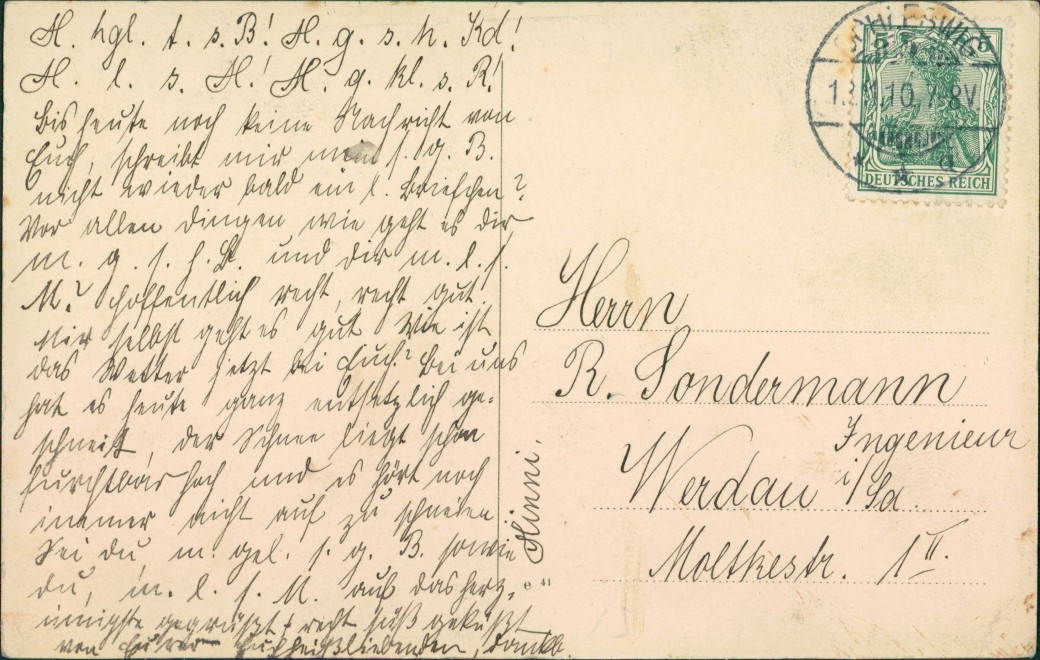 H. hgl. t. s. B! H. g. s. n. Kd!
H. l. s. H! H. g. kl. s. R!
Bis heute noch keine Nachricht von
Euch, schreibt mir mein s. g. B.
nicht wieder bald ein l. Briefchen?
Vor allen Dingen wie geht es dir
m. g. s. h. B. und dir m. l. s.
M.? Hoffentlich recht, recht gut.
Mir selbst geht es gut. Wie ist
das Wetter jetzt bei Euch? Bei uns
hat es heute ganz entsetzlich ge-
schneit, der Schnee liegt schon
furchtbar hoch und es hört noch
immer nicht auf zu schneien.
Sei du m. gel. s. g. B. sowie
du, m. l. s. M. auf das herz-
innigste gegrüßt + recht süß geküßt
von Eurer Euch heißliebenden, dankb.
Hinni.
SCHLESWIG
10. 7-8V
* a
5 5
DEUTSCHES REICH
Herrn
R. Sondermann
Ingenieur
Werdau i/Sa.
Moltkestr. 1 II.